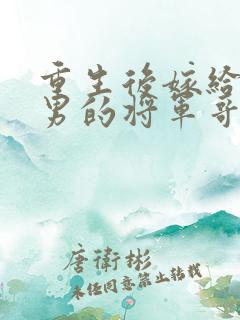 重生後嫁給
男的將軍哥
唐衛彬
未经同意禁止转载